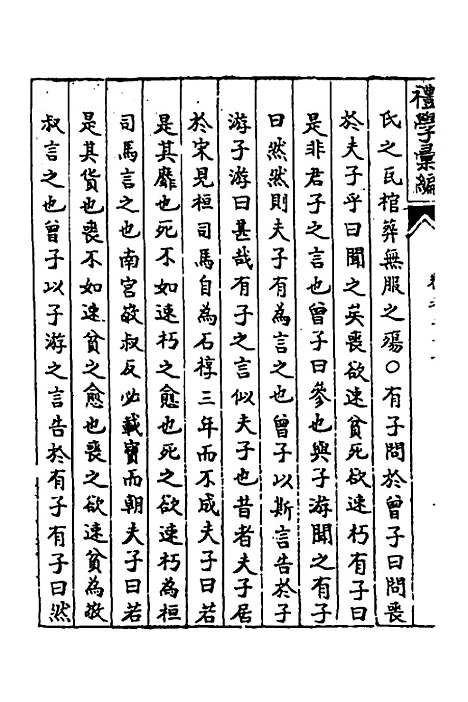 禮學彙編
氏之瓦棺葬無服之殤○有子問於曾子曰問喪
於夫子乎曰聞之矣喪欲速貧死欲速朽有子曰
是非君子之言也曾子曰參也與子游聞之有子
曰然然則夫子有為言之也曾子以斯言告於子
游子游曰甚哉有子之言似夫子也昔者夫子居
於宋見桓司馬自為石椁三年而不成夫子曰若
是其靡也死不如速朽之愈也死之欲速朽為桓
司馬言之也南宮敬叔反必載寶而朝夫子曰若
是其貨也喪不如速貧之愈也喪之欲速貧為敬
叔言之也曾子以子游之言告於有子有子曰然